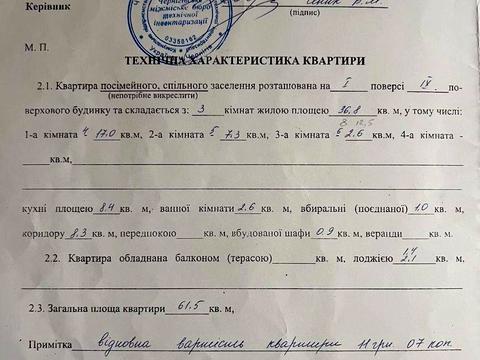 Керівник
(підпис)
Чернігівське
міжміське бюро
технічної
інвентаризації
03358162
М. П.
ТЕХНІЧНА ХАРАКТЕРИСТИКА КВАРТИРИ
2.1. Квартира посімейного, спільного заселення розташована на I поверсі IX по-
(непотрібне викреслити)
верхового будинку та складається з: 3 кімнат жилою площею 36,8 кв. м, у тому числі:
1-а кімната 4 17.0 кв.м, 2-а кімната 5 7,3 кв.м, 3-а кімната 6 2,6 кв.м, 4-а кімната -
8 12,5
кв.м,
кухні площею 8.4 кв. м, ванної кімнати 2.6 кв. м, вбиральні (поєднаної) 1.0 кв. м,
коридору 8,3 кв. м, передпокою кв. м, вбудованої шафи 0.9 кв. м, веранди кв. м.
2.2. Квартира обладнана балконом (терасою) кв. м, лоджією 2.1 кв. м.
2.3. Загальна площа квартири 61.5 кв. м,
Примітка відновна вартість квартири 11 грн 07 коп